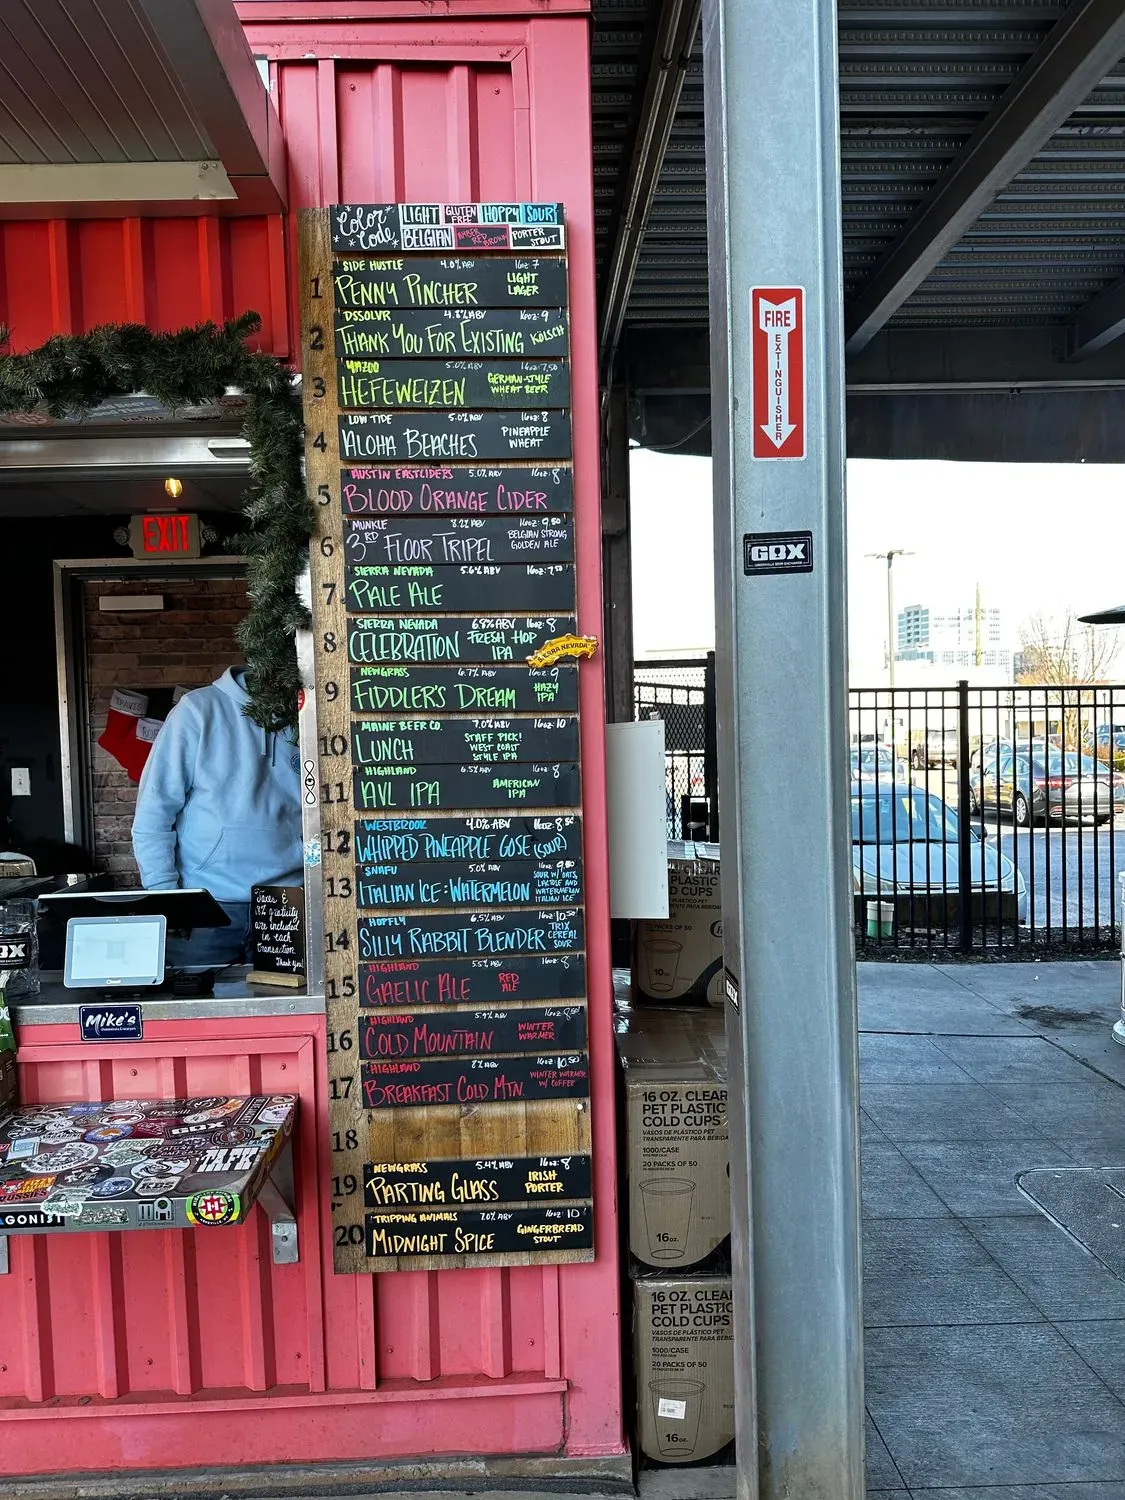 Color Code
LIGHT
GLUTEN FREE
HOPPY
SOUR
BELGIAN
AMBER RED BROWN
PORTER STOUT
1
SIDE HUSTLE 4.0% ABV 16oz: 7
PENNY PINCHER
LIGHT LAGER
2
DSSOLVR 4.8% ABV 16oz: 9
THANK YOU FOR EXISTING KÖLSCH
3
YAZOO 5.0% ABV 16oz: 7.50
HEFEWEIZEN
GERMAN-STYLE
WHEAT BEER
4
LOW TIDE 5.0% ABV 16oz: 8
ALOHA BEACHES
PINEAPPLE
WHEAT
5
AUSTIN EASTCIDERS 5.0% ABV 16oz: 8
BLOOD ORANGE CIDER
6
MUNKLE 8.2% ABV 16oz: 9.50
3RD FLOOR TRIPEL
BELGIAN STRONG
GOLDEN ALE
7
SIERRA NEVADA 5.6% ABV 16oz: 7.50
PALE ALE
8
SIERRA NEVADA 6.8% ABV 16oz: 8
CELEBRATION
FRESH HOP
IPA
SIERRA NEVADA
9
NEWGRASS 6.7% ABV 16oz: 9
FIDDLER'S DREAM
HAZY
IPA
10
MAINE BEER CO. 7.0% ABV 16oz: 10
LUNCH
STAFF PICK!
WEST COAST
STYLE IPA
11
HIGHLAND 6.5% ABV 16oz: 8
AVL IPA
AMERICAN
IPA
12
WESTBROOK 4.0% ABV 16oz: 8.50
WHIPPED PINEAPPLE GOSE (SOUR)
13
SNAFU 5.0% ABV 16oz: 9.50
ITALIAN ICE: WATERMELON
SOUR W/ OATS,
LACTOSE AND
WATERMELON
ITALIAN ICE
14
HOPFLY 6.5% ABV 16oz: 10.50
SILLY RABBIT BLENDER
TRIX
CEREAL
SOUR
15
HIGHLAND 5.5% ABV 16oz: 8
GAELIC ALE
RED
ALE
16
HIGHLAND 5.9% ABV 16oz: 9.50
COLD MOUNTAIN
WINTER
WARMER
17
HIGHLAND 8% ABV 16oz: 10.50
BREAKFAST COLD MTN.
WINTER WARMER
W/ COFFEE
18
19
NEWGRASS 5.4% ABV 16oz: 8
PARTING GLASS
IRISH
PORTER
20
TRIPPING ANIMALS 7.0% ABV 16oz: 10
MIDNIGHT SPICE
GINGERBREAD
STOUT
FIRE
EXTINGUISHER
GBX
GREENVILLE BEER EXCHANGE
EXIT
TRAVIS
Taxes &
18% gratuity
are included
in each
transaction.
Thank You!
Mike's
GBX
freewill
TAFT
AGONIST
PLASTIC
COLD CUPS
PACKS OF 50
16 OZ. CLEAR
PET PLASTIC
COLD CUPS
VASOS DE PLÁSTICO PET
TRANSPARENTE PARA BEBIDA
1000/CASE
20 PACKS OF 50
16oz.
16 OZ. CLEAR
PET PLASTIC
COLD CUPS
VASOS DE PLÁSTICO PET
TRANSPARENTE PARA BEBID
1000/CASE
20 PACKS OF 50
16oz.